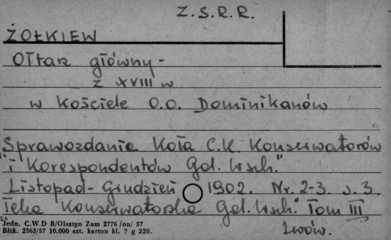 Z.S.R.R.
ŻOŁKIEW
Ołtarz główny -
z XVIII w
w Kościele O.O. Dominikanów
Sprawozdanie Koła C.K. Konserwatorów
"i Korespondentów Gal. Wsch."
Listopad - Grudzień 1902. Nr. 2-3. s. 3.
Teka Konserwatorska Gal. Wsch." Tom III
Lwów.
Jedn. C.W D B/Olsztyn Zam 2776 /on/ 57
Bltk. 2563/57 10.000 szt. karton kl. 7 g 220.